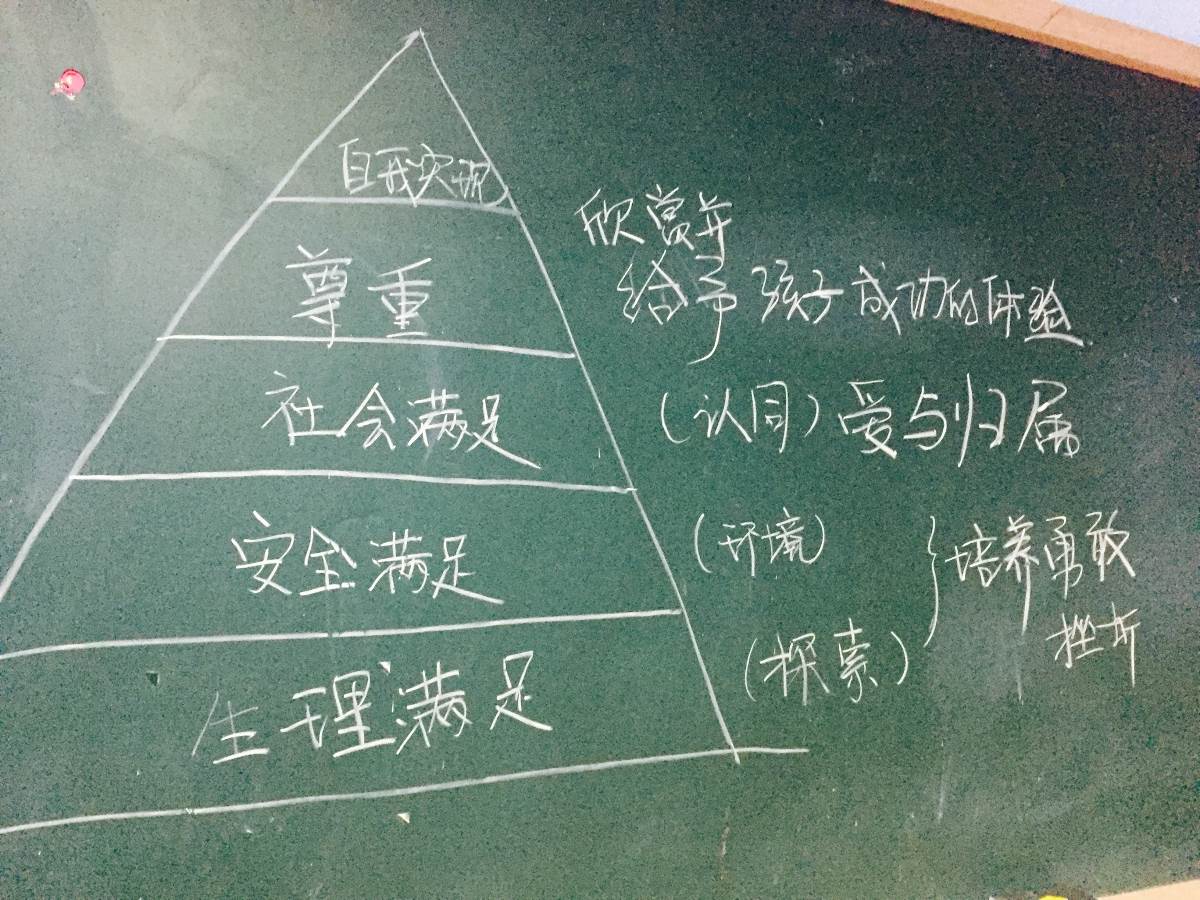 自我实现
尊重
欣赏并
给予孩子成功的体验
社会满足
(认同)爱与归属
安全满足
(环境)
培养勇敢
挫折
生理满足
(探索)